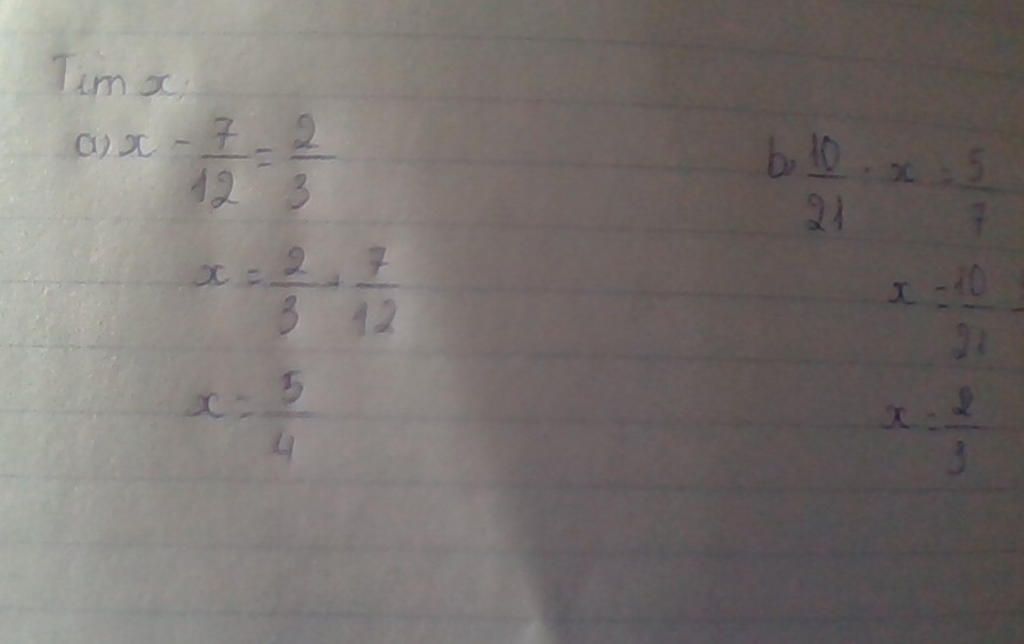 Tìm x:
a) x - 7/12 = 2/3
x = 2/3 + 7/12
x = 5/4
b) 10/21 : x = 5/7
x = 10/21
x = 2/3